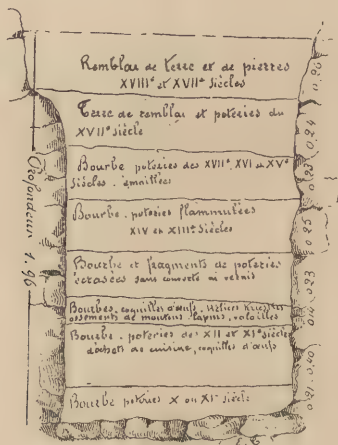 Remblai de terre et de pierres
XVIIIe et XVIIe siècles
0.20
Terre de remblai et poteries du
XVIIe siècle
0.24
Bourbe poteries des XVIIe, XVI et XVe
siècles. émaillées
Bourbe. poteries flammulées
XIV et XIIIe siècles
0.25
Bourbe et fragments de poteries
écrasées sans couverte ni vernis
0.23
Bourbes, coquilles d'œufs,
ossements de moutons, lapins, volailles
Bourbe. poteries des XII et XIe siècles
déchets de cuisine, coquilles d'œufs
Bourbe poteries X ou XIe siècle
Profondeur 1.96